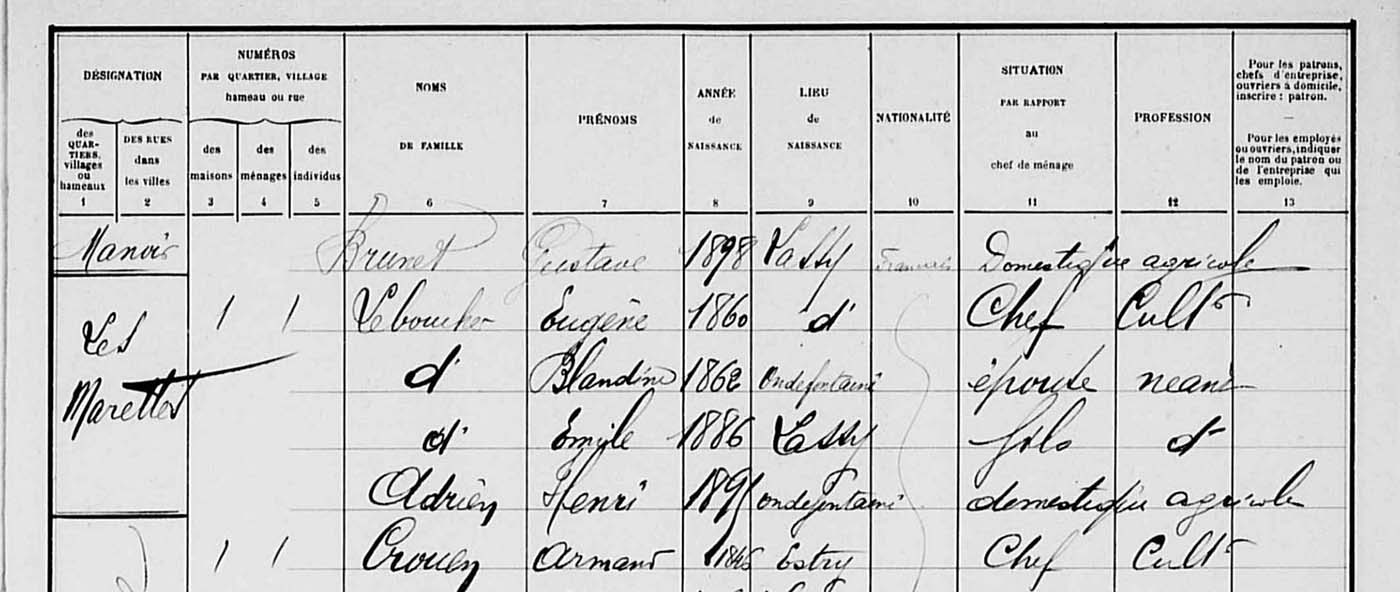 DÉSIGNATION
des QUAR-TIERS, villages ou hameaux
DES RUES dans les villes
NUMÉROS
PAR QUARTIER, VILLAGE
hameau ou rue
des maisons
des ménages
des individus
NOMS
DE FAMILLE
PRÉNOMS
ANNÉE
de
NAISSANCE
LIEU
de
NAISSANCE
NATIONALITÉ
SITUATION
PAR RAPPORT
au
chef de ménage
PROFESSION
Pour les patrons,
chefs d'entreprise,
ouvriers à domicile,
inscrire : patron.
—
Pour les employés
ou ouvriers, indiquer
le nom du patron ou
de l'entreprise qui
les emploie.
1 2 3 4 5 6 7 8 9 10 11 12 13
Manoir Brunet Gustave 1898 Lassy Français Domestique agricole
Les 1 1 Leboucher Eugène 1860 d° Chef Cultr
Marettes d° Blandine 1862 Ondefontaine épouse neant
d° Emile 1886 Lassy fils d°
Adrien Henri 1895 Ondefontaine domestique agricole
1 1 Crouen Armand 1846 Estry Chef Cultr